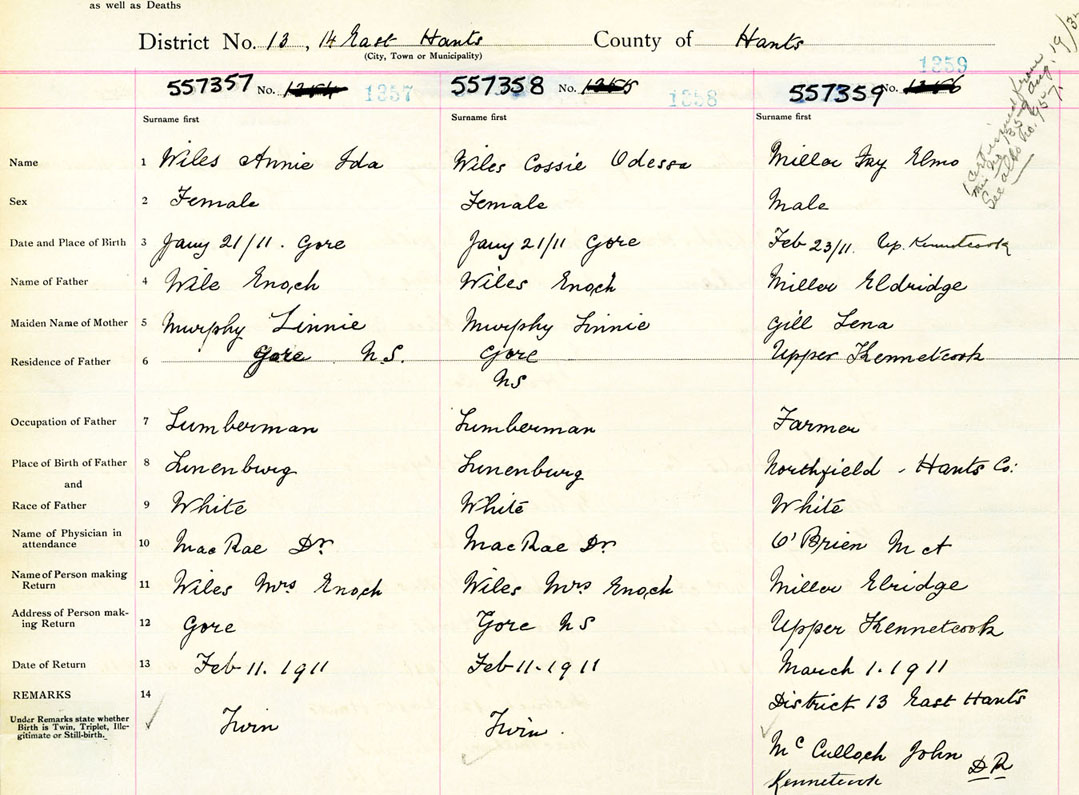 as well as Deaths
District No. 13, 14 East Hants County of Hants
(City, Town or Municipality)
1359
557357 No. 1357 557358 No. 1358 557359 No.
Surname first Surname first Surname first
See also no. 957.
Name 1 Wiles Annie Ida Wiles Cossie Odessa Miller Fay Elmo
Sex 2 Female Female Male
Date and Place of Birth 3 Jany 21/11. Gore Jany 21/11 Gore Feb 23/11. Up. Kennetcook
Name of Father 4 Wile Enoch Wiles Enoch Miller Eldridge
Maiden Name of Mother 5 Murphy Linnie Murphy Linnie Gill Lena
Residence of Father 6 Gore N.S. Gore Upper Kennetcook
NS
Occupation of Father 7 Lumberman Lumberman Farmer
Place of Birth of Father 8 Lunenburg Lunenburg Northfield - Hants Co:
and
Race of Father 9 White White White
Name of Physician in
attendance 10 MacRae Dr MacRae Dr O'Brien
Name of Person making
Return 11 Wiles Mrs Enoch Wiles Mrs Enoch Miller Elridge
Address of Person mak-
ing Return 12 Gore Gore NS Upper Kennetcook
Date of Return 13 Feb 11. 1911 Feb 11-1911 March 1. 1911
REMARKS 14 District 13 East Hants
Under Remarks state whether
Birth is Twin, Triplet, Ille-
gitimate or Still-birth. Twin Twin.
McCulloch John DR
Kennetcook